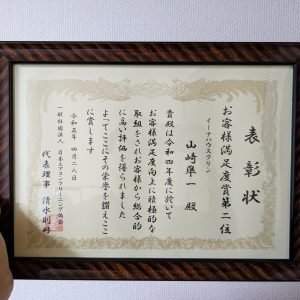 表彰状
お客様満足度賞第二位
イーナハウスクリン
山﨑準一 殿
貴殿は令和四年度に於いて
お客様満足度向上に積極的な
取組をされお客様から総合的
に高い評価を得られました
よってここにその栄誉を讃えここ
に賞します
令和五年 四月二八日
一般社団法人 日本エアコンクリーニング協会
代表理事 清水則好